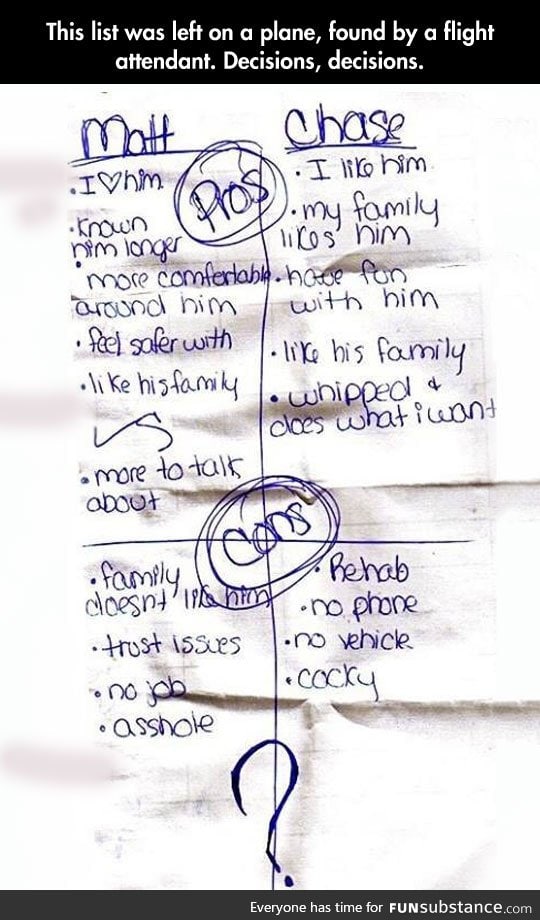 This list was left on a plane, found by a flight
attendant. Decisions, decisions.
Matt
Pros
• I ♡ him
• Known
him longer
• more comfertable
around him
• feel safer with
• like his family
• more to talk
about
Chase
• I like him
• my family
likes him
• have fun
with him
• like his family
• whipped &
does what i want
Cons
• family
doesnt like him
• trust issues
• no job
• asshole
• Rehab
• no phone
• no vehicle
• cocky
?
Everyone has time for FUNsubstance.com